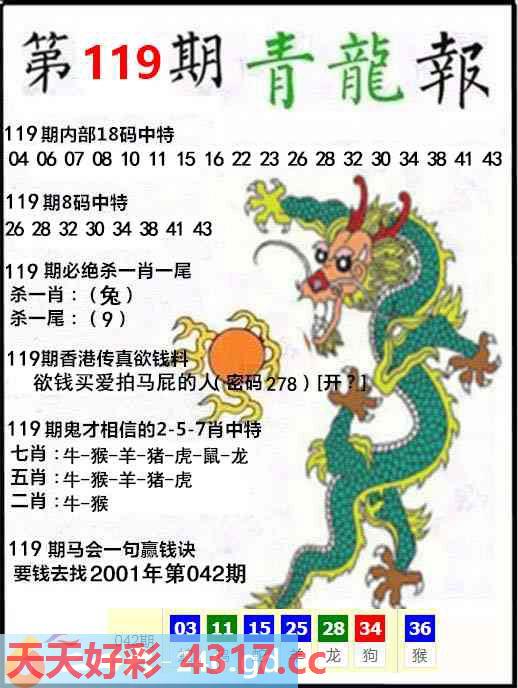 第119期青龍報
119期内部18码中特
04 06 07 08 10 11 15 16 22 23 26 28 32 30 34 38 41 43
119期8码中特
26 28 32 30 34 38 41 43
119期必绝杀一肖一尾
杀一肖：（兔）
杀一尾：（9）
119期香港传真欲钱料
欲钱买爱拍马屁的人（密码278）[开？]
119期鬼才相信的2-5-7肖中特
七肖：牛-猴-羊-猪-虎-鼠-龙
五肖：牛-猴-羊-猪-虎
二肖：牛-猴
119期马会一句赢钱诀
要钱去找2001年第042期
042期 03 11 15 25 28 34 36
龙 狗 猴
天天好彩 4317.cc